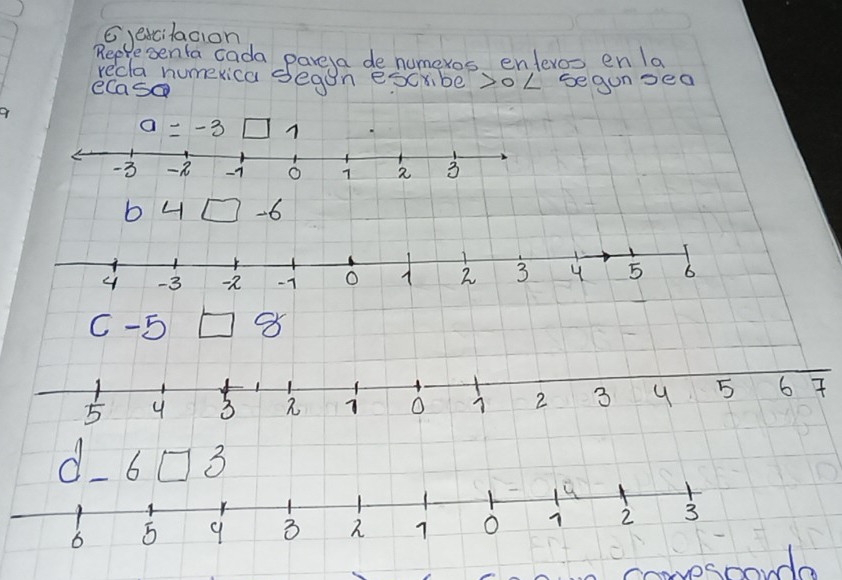 Ejercitacion
Representa cada pareja de numeros enteros en la
recta numerica segun escribe > o < segun sea
ecaso
a = -3 □ 1
-3 -2 -1 0 1 2 3
b 4 □ -6
4 -3 -2 -1 0 1 2 3 4 5 6
c -5 □ 8
5 4 3 2 1 0 1 2 3 4 5 6 7
d - 6 □ 3
6 5 4 3 2 1 0 1 2 3
corresponda